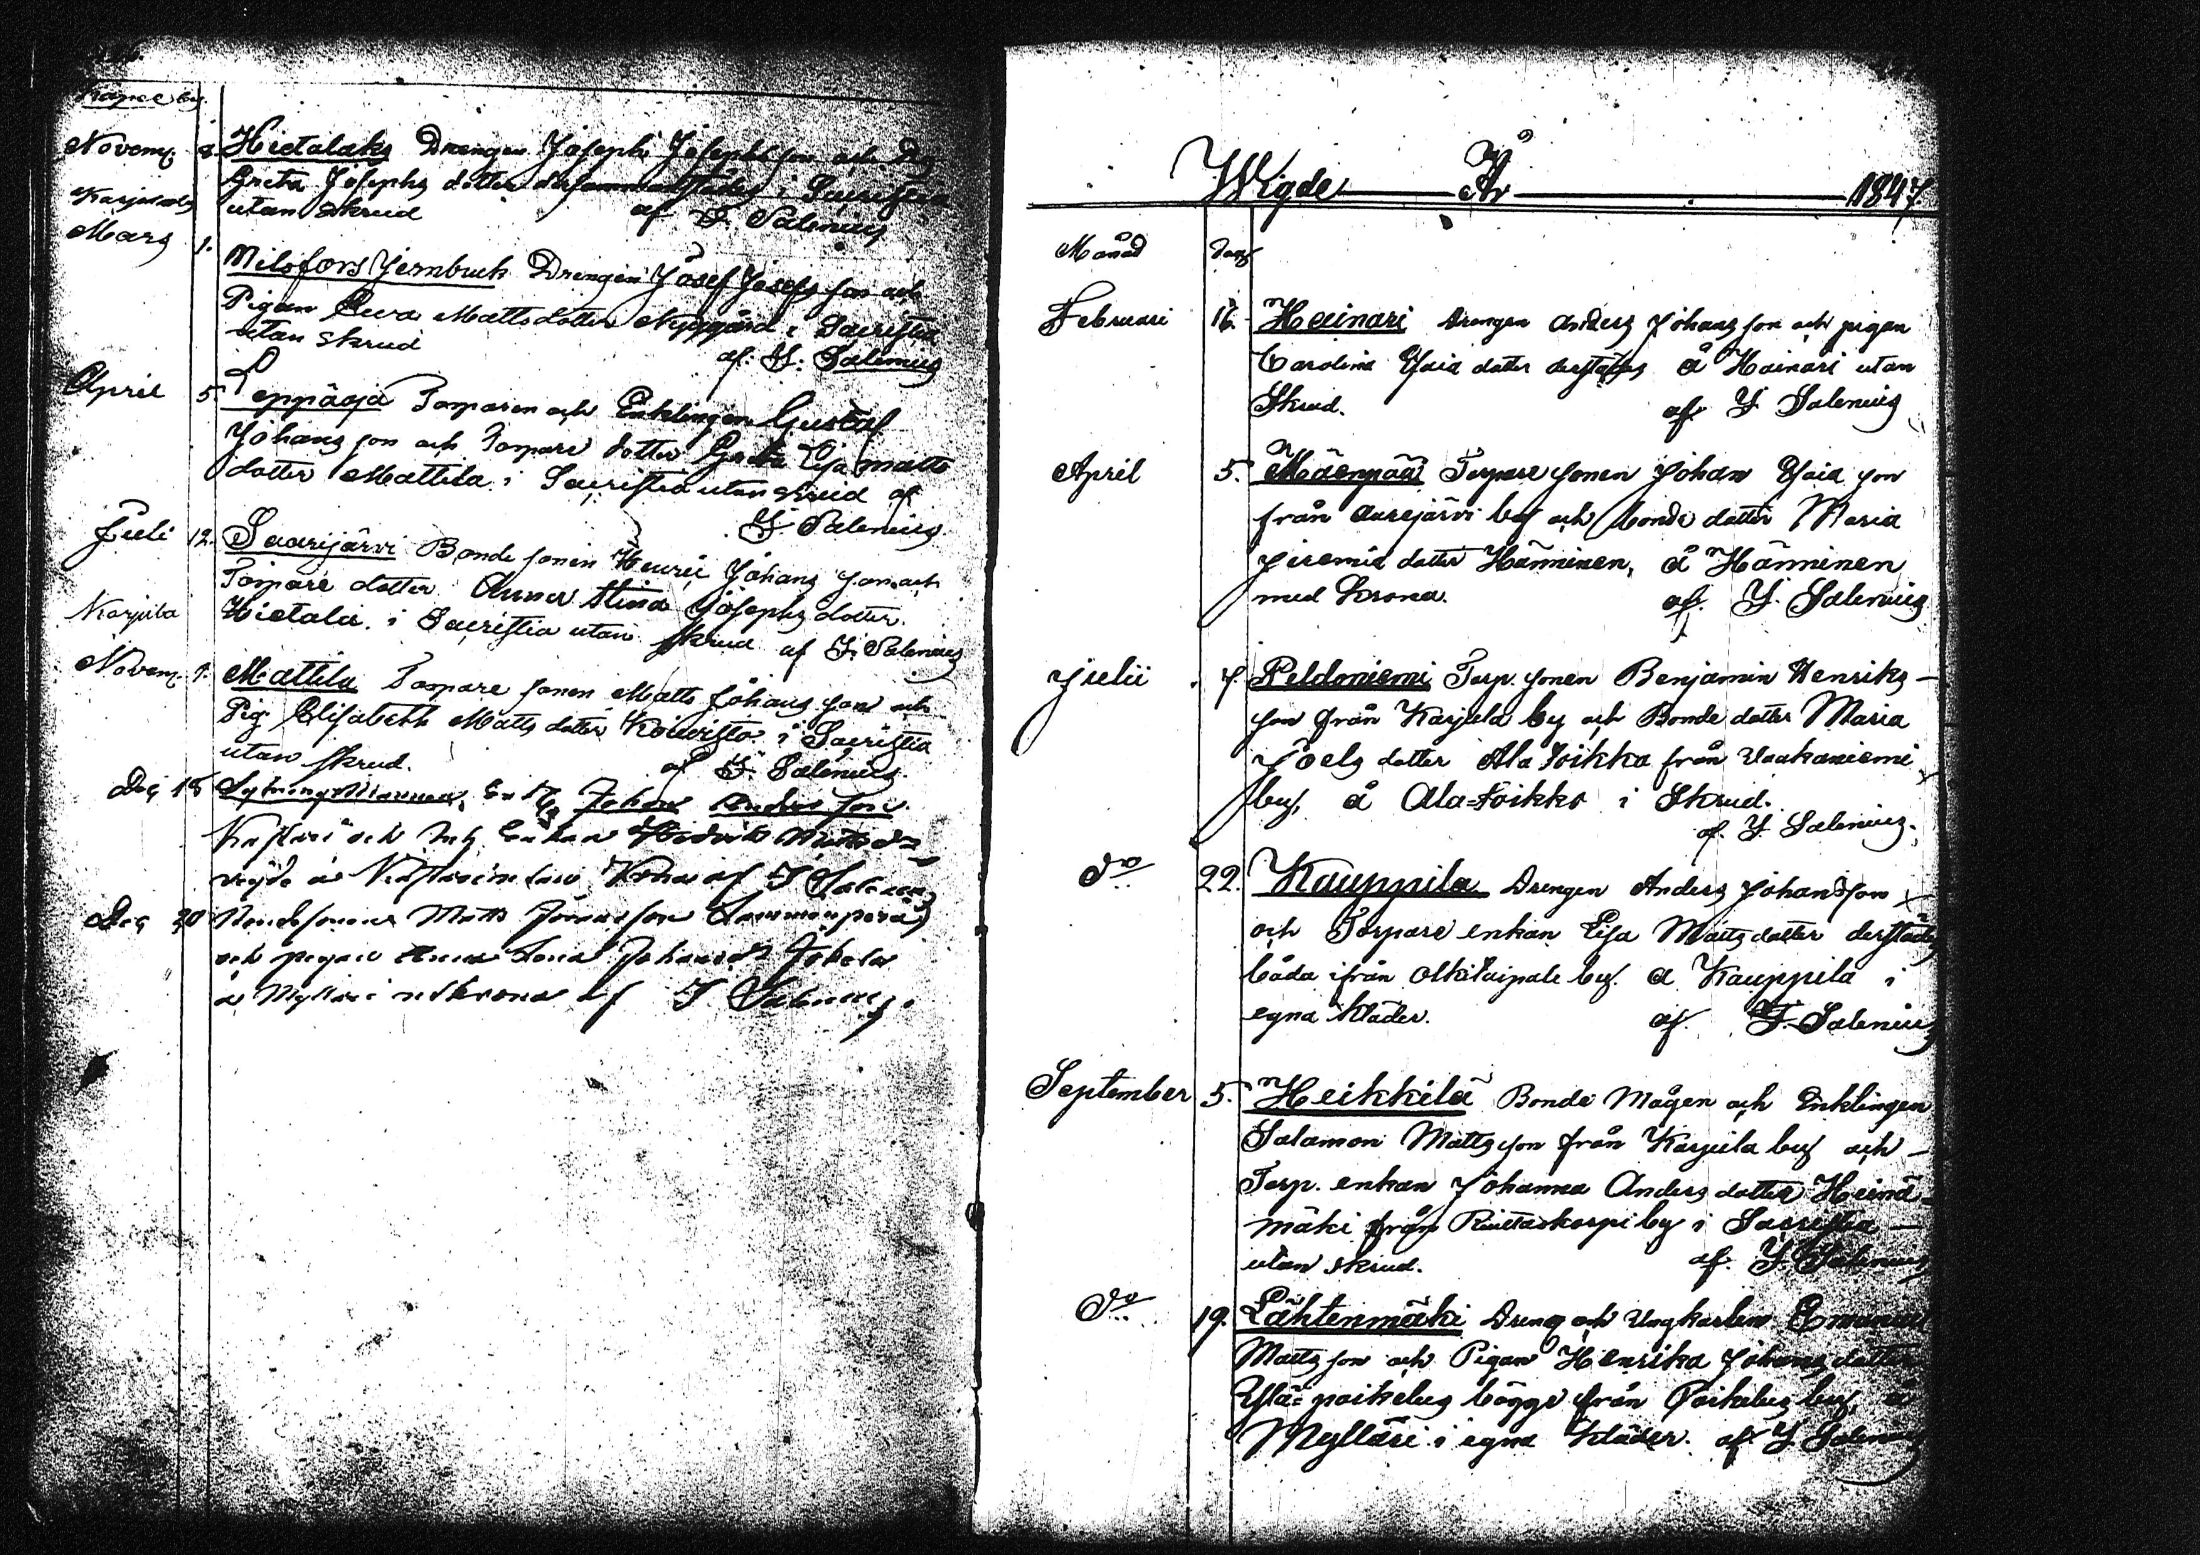 Kapel by.
Novemb. 8. Hietalaks Drengen Joseph Josephs son och Pig
Greta Josephs dotter dersammastädes i Sacristia
utan Skrud af I. Salenius
Karjulaby
Mars 1. Nilsfors Jernbruk Drengen Josef Josefs son och
Pigan Eva Matts dotter Nygård i Sacristia
utan skrud af. I. Salenius
April 5 Leppäoja Torparen och Enklingen Gustaf
Johans son och Torpare dotter Greta Lisa Matts
dotter Mattila i Sacristia utan skrud af
I. Salenius
Juli 12. Saarijärvi Bonde sonen Henric Johans son och
Torpare dotter Anna Stina Josephs dotter
Hietala. i Sacristia utan skrud af I. Salenius
Karjula
Novem. 1. Mattila Torpare sonen Matts Johans son och
Pig. Elisabeth Matts dotter Koivisto i Sacristia
utan skrud. af I. Salenius.
Dec 18 Johan Anders son
och Enkan Hedvik Matts d=r
Krona af I Salenius
Dec 30 Bondesonen Matts son Lamminperä
och pigan Anna Lena Johans d=r Jokela
a Myllari i af I Salenius.
Wigde År 1847.
Månad Dag
Februari 16. Heinari Drengen Anders Johans son och pigan
Carolina Esaia dotter derstädes å Heinari utan
Skrud. af I Salenius
April 5. Mäenpää Torpare sonen Johan Esaia son
från Aurejärvi by och bonde dotter Maria
Jeremia dotter Hänninen, å Hänninen
med Krona. af. I. Salenius
Julii 4. Peldoniemi Torp. sonen Benjamin Henriks –
son från Karjula by och Bonde dotter Maria
Joels dotter Ala Toikko från Vaakaniemi
by, å Ala=Toikko i Skrud.
af. I Salenius.
D:o 22. Kauppila Drengen Anders Johansson
och Torpare enkan Lisa Matts dotter derstädes
båda ifrån Olkitaipale by. å Kauppila i
egna kläder. af. I. Salenius
September 5. Heikkilä Bonde Mågen och Enklingen
Salamon Matts son från Karjula by och –
Torp. enkan Johanna Anders dotter Heinä=
mäki från Riuttaskorpi by i Sacristia –
utan skrud. af. I. Salenius
D:o 19. Lähtenmäki Dreng och Ungkarlen Emanuel
Matts son och Pigan Henrika Johans dotter
Ylä=poikelus bägge från Poikelus by, å
Mylläri i egna kläder. af I Salenius